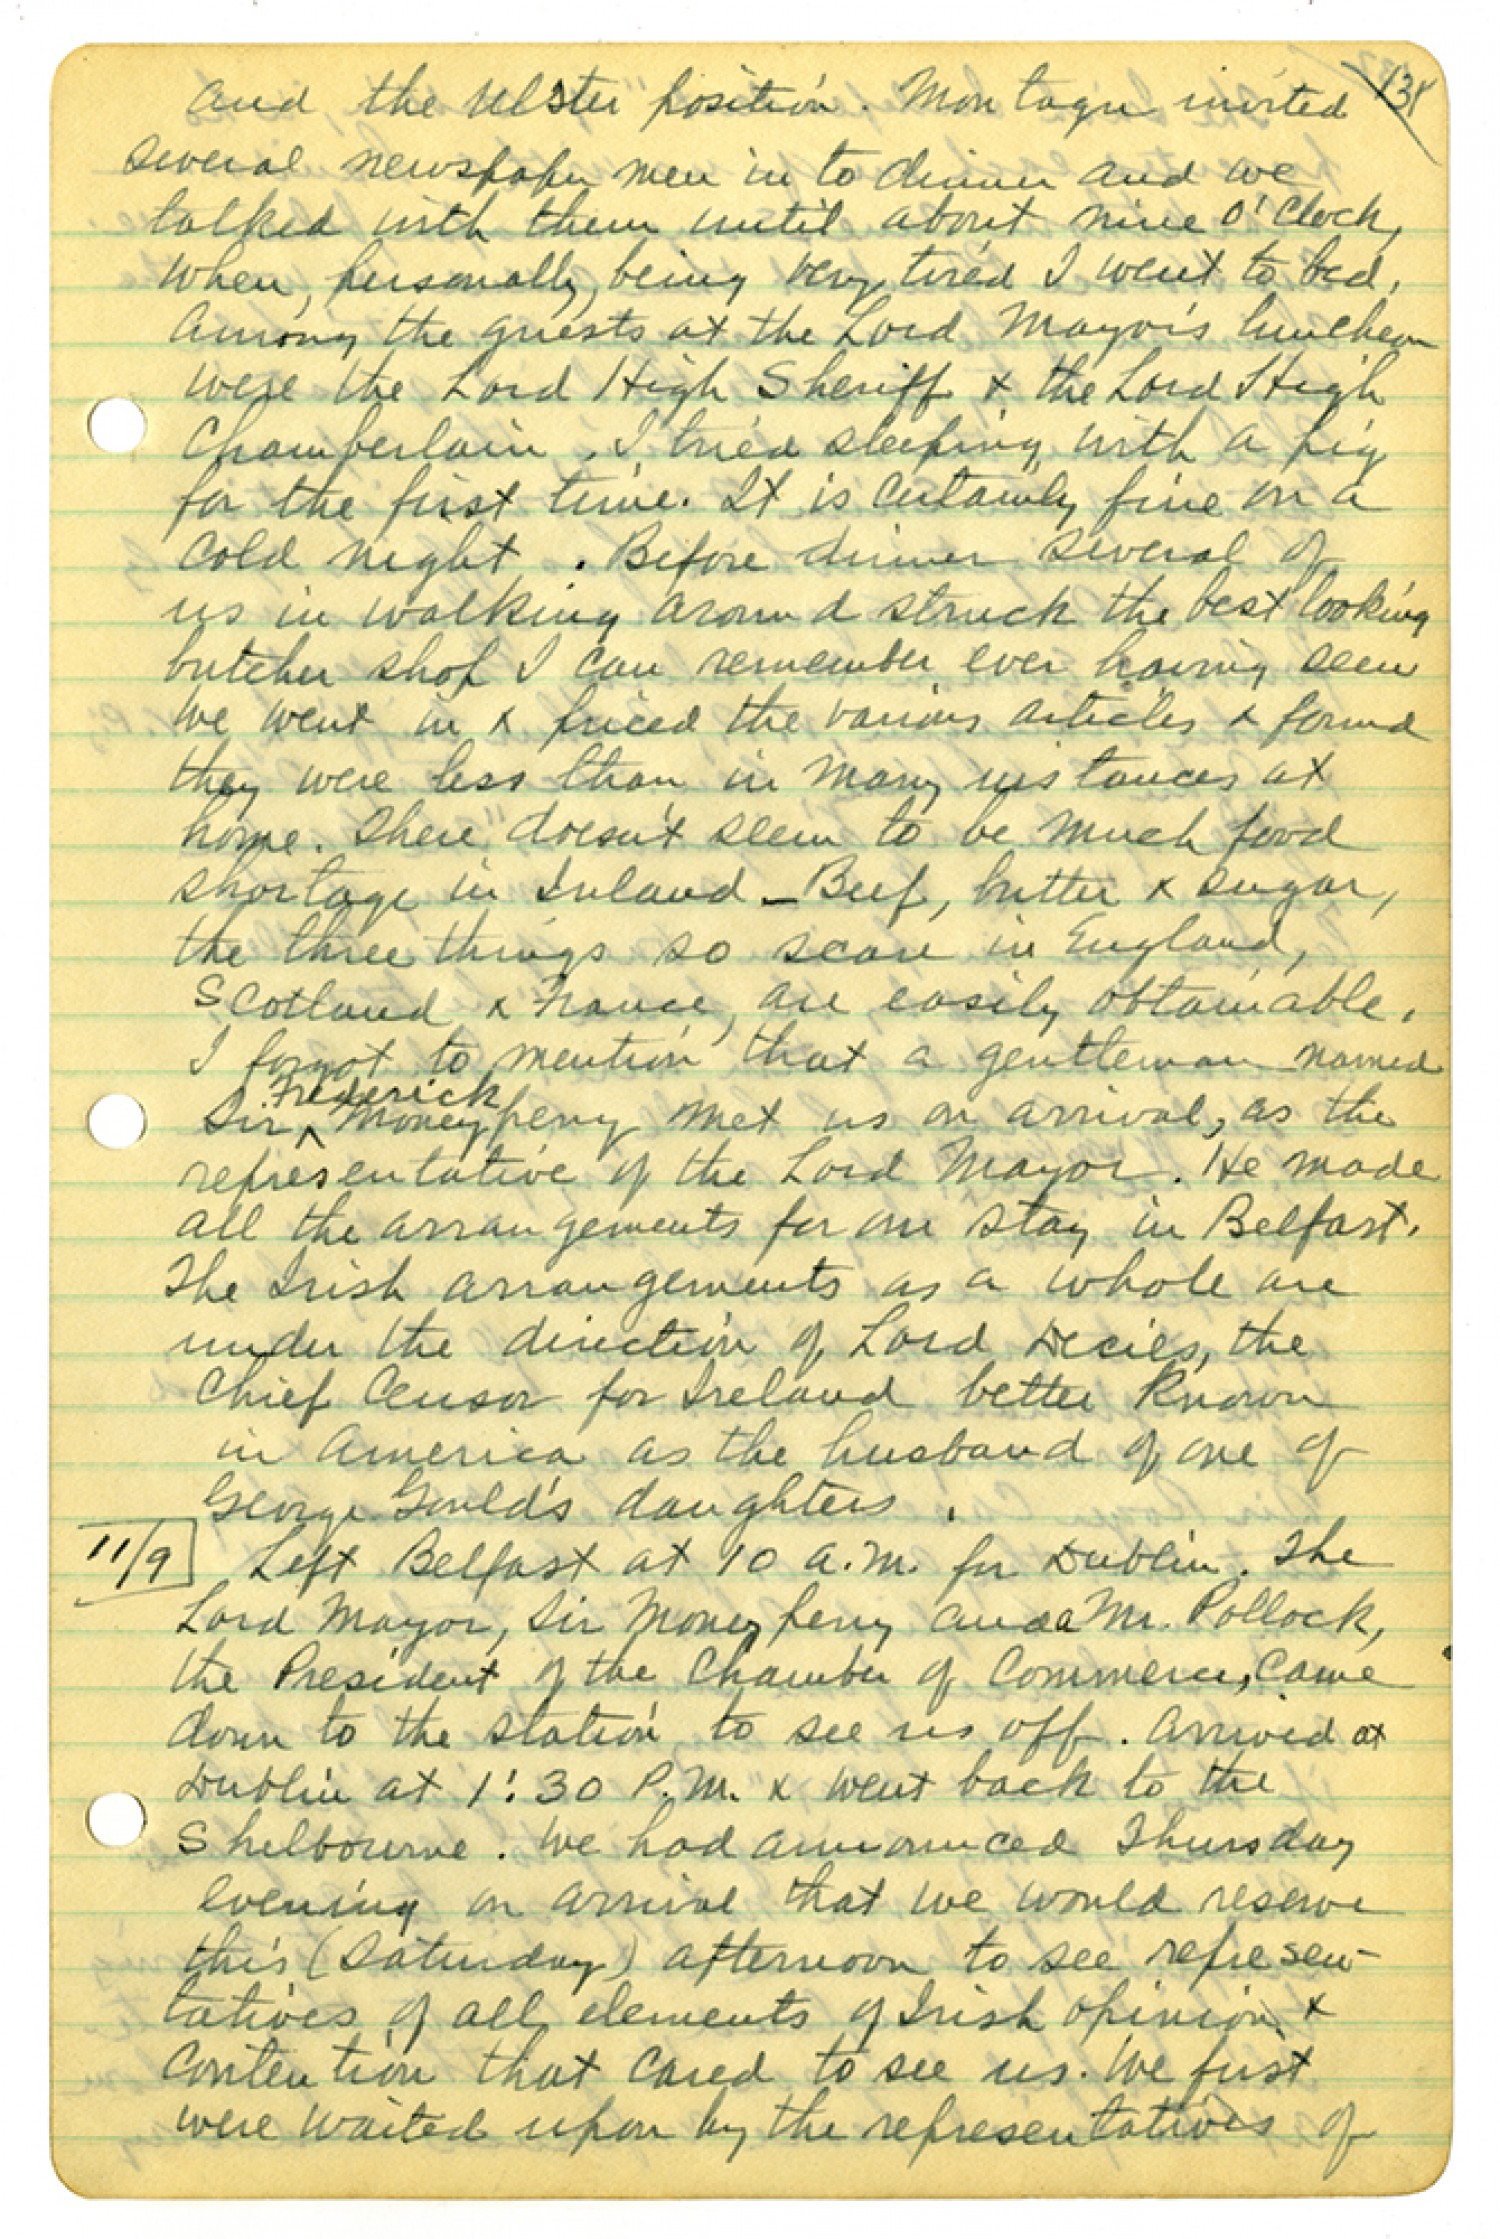 138
and the Ulster position. Montagu invited
several newspaper men in to dinner and we
talked with them until about nine O'Clock,
when, personally, being very tired I went to bed.
Among the guests at the Lord Mayor's luncheon
were the Lord High Sheriff & the Lord High
Chamberlain. I tried sleeping with a pig
for the first time. It is certainly fine on a
cold night. Before dinner several of
us in walking around struck the best looking
butcher shop I can remember ever having seen
We went in & priced the various articles & found
they were less than in many instances at
home. There doesn't seem to be much food
shortage in Ireland - Beef, butter & sugar,
the three things so scarce in England,
Scotland & France, are easily obtainable.
I forgot to mention that a gentleman named
Sir ^ Frederick Moneypeny met us on arrival, as the
representative of the Lord Mayor. He made
all the arrangements for our stay in Belfast.
The Irish arrangements as a whole are
under the direction of Lord Decies, the
Chief Censor for Ireland better known
in America as the husband of one of
George Gould's daughters.
11/9 Left Belfast at 10 a.m. for Dublin. The
Lord Mayor, Sir Moneypeny and a Mr. Pollock,
the President of the Chamber of Commerce, came
down to the station to see us off. Arrived at
Dublin at 1:30 P.M. & went back to the
Shelbourne. We had announced Thursday
evening on arrival that we would reserve
this (Saturday) afternoon to see represen-
tatives of all elements of Irish opinion &
contention that cared to see us. We first
were waited upon by the representatives of